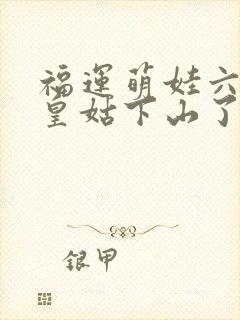 福運萌娃六
皇姑下山了
銀甲